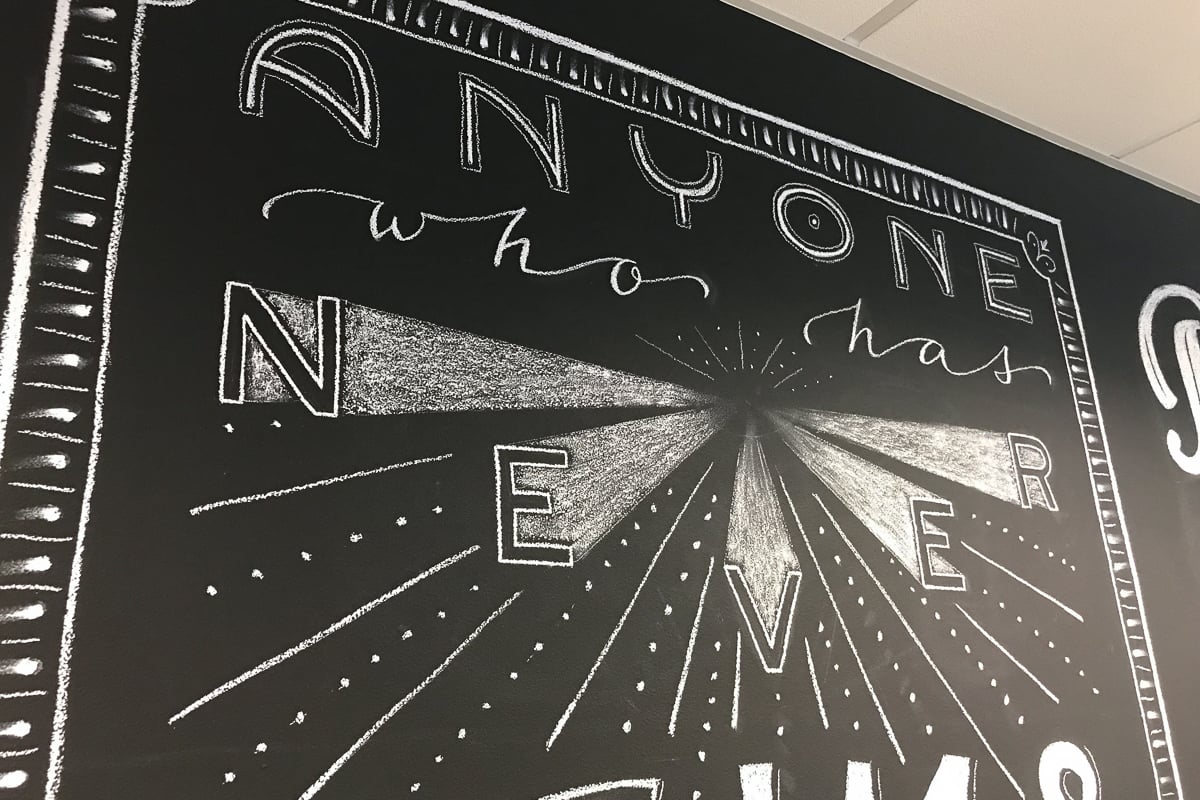 ANYONE
who has
NEVER